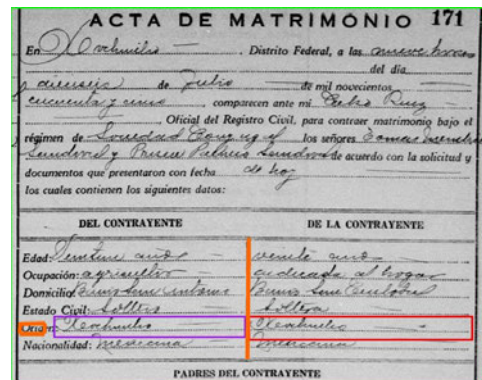 ACTA DE MATRIMONIO 171
En Xochimilco Distrito Federal, a las nueve horas
del día
dieciseis de Julio de mil novecientos
cincuenta y uno comparecen ante mí Ruiz
Oficial del Registro Civil, para contraer matrimonio bajo el
régimen de Sociedad Conyugal los señores Tomas
Sandoval y Sandoval de acuerdo con la solicitud y
documentos que presentaron con fecha de hoy
los cuales contienen los siguientes datos:
DEL CONTRAYENTE DE LA CONTRAYENTE
Edad: años veinte años
Ocupación: agricultor dedicada al hogar
Domicilio:
Estado Civil: soltero soltera
Origen: Xochimilco Xochimilco
Nacionalidad: mexicana mexicana
PADRES DEL CONTRAYENTE